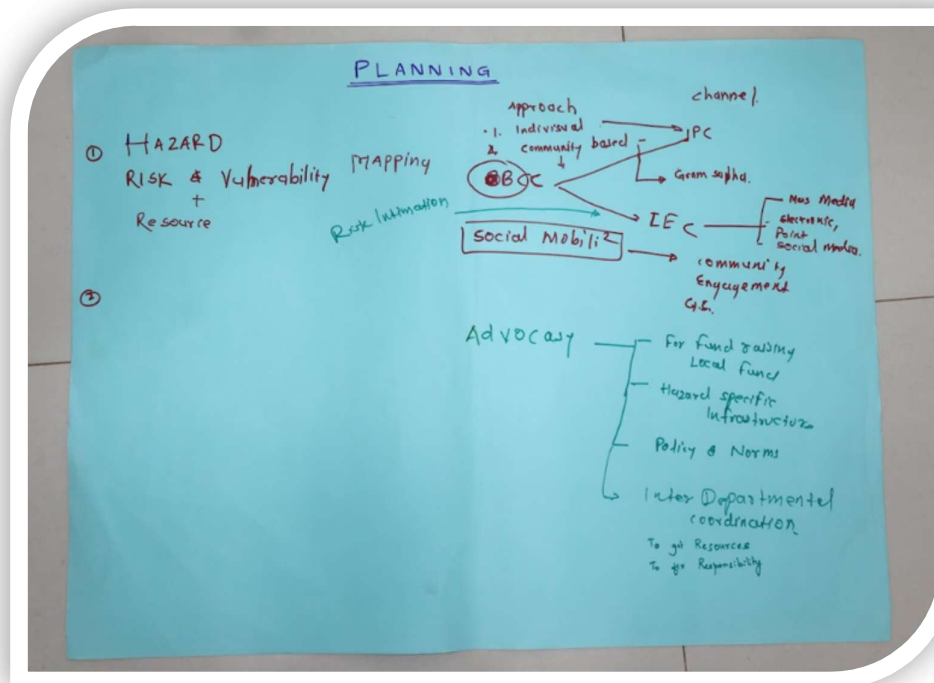 PLANNING
① HAZARD
RISK & Vulnerability MAPPING
+
Resource
②
Risk Intimation
Approach
1. Indivisual
2. Community based
BCC
Social Mobiliz
channel.
IPC
Gram sabha.
IEC
Mas Media
electronic,
Point
Social media.
community
Engagement
G.S.
Advocacy
For fund raising
Local Fund
Hazard specific
Infrastructure
Policy & Norms
Inter Departmental
coordination
To get Resources
To fix Responsibility